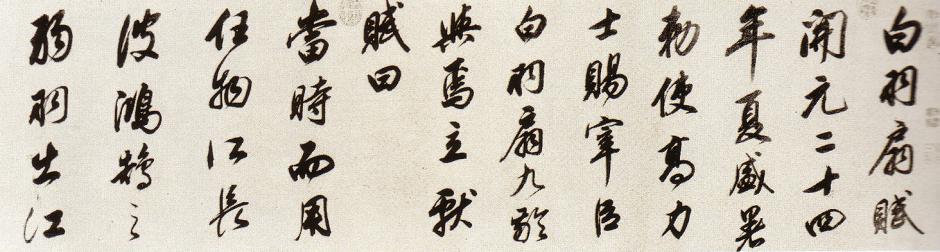 白羽扇賦
開元二十四
年夏盛暑
勑使高力
士賜宰臣
白羽扇九齡
與焉立獻
賦曰
當時而用
任物所長
彼鴻鵠之
弱羽出江